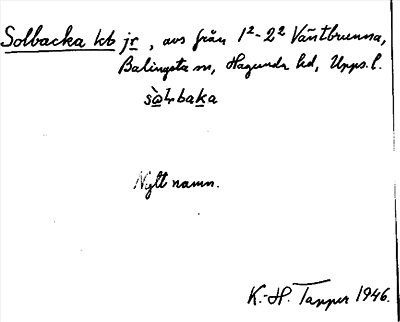 Solbacka kb jr, avs från 1²-2² Väntbrunna,
Balingsta sn, Hagunda hd, Upps. l.
sòlbaka
Nytt namn.
K.-H. Tapper 1946.